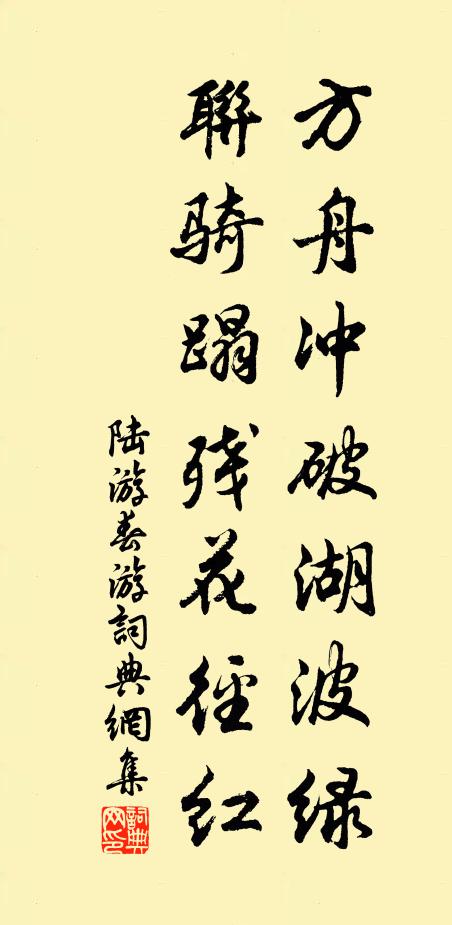 方舟冲破湖波绿
聯骑蹋残花径红
陆游春游詞典網集
詞典网印